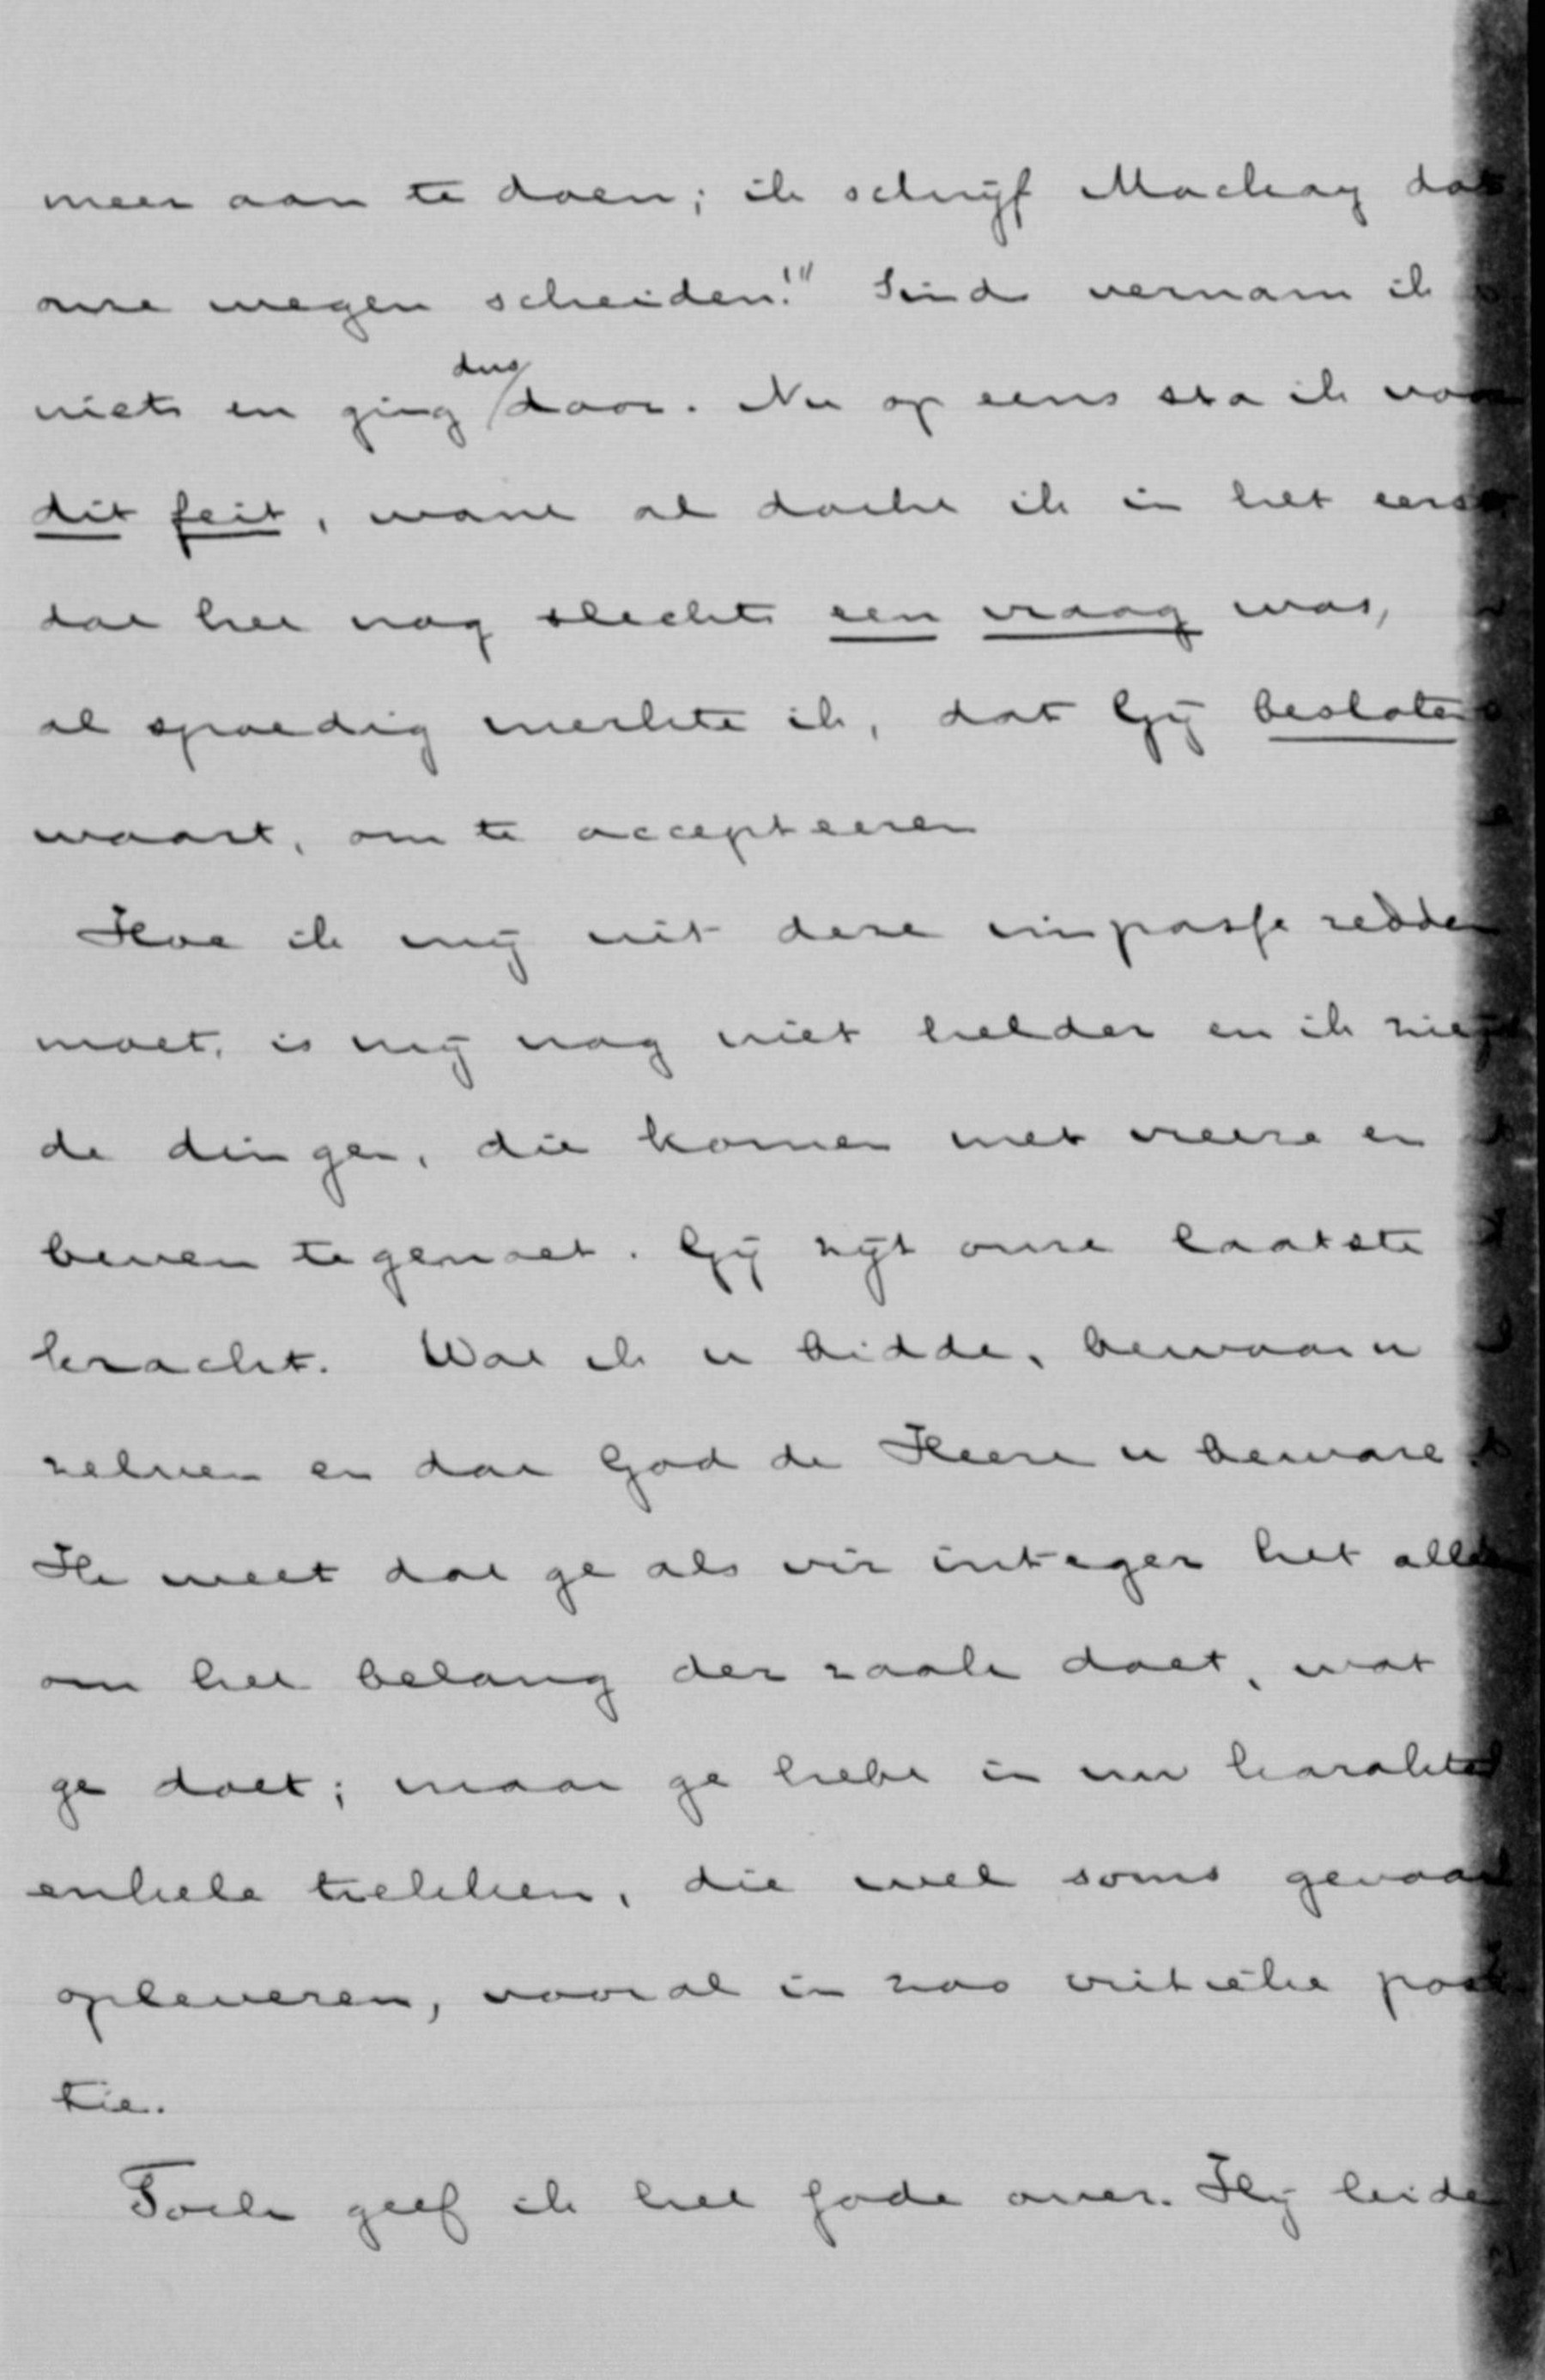 meer aan te doen; ik schrijf Mackay dat
onze wegen scheiden!" Sinds vernam ik
niets en ging dus door. Nu op eens sta ik voor
dit feit, want al dacht ik in het eerst
dat het nog slechts een vraag was,
al spoedig merkte ik, dat Gij besloten
waart, om te accepteeren
Hoe ik mij uit deze impasse redden
moet, is mij nog niet helder en ik zie
de dingen, die komen met vreeze en
beven tegemoet. Gij zijt onze laatste
kracht. Wat ik u bidde, bewaar u
zelven en dat God de Heere u beware.
Ik weet dat ge als vir integer het alles
om het belang der zaak doet, wat
ge doet; maar ge hebt in uw karakter
enkele trekken, die wel soms gevaar
opleveren, vooral in zoo critieke posi
tie.
Toch geef ik het Gode over. Hij leide